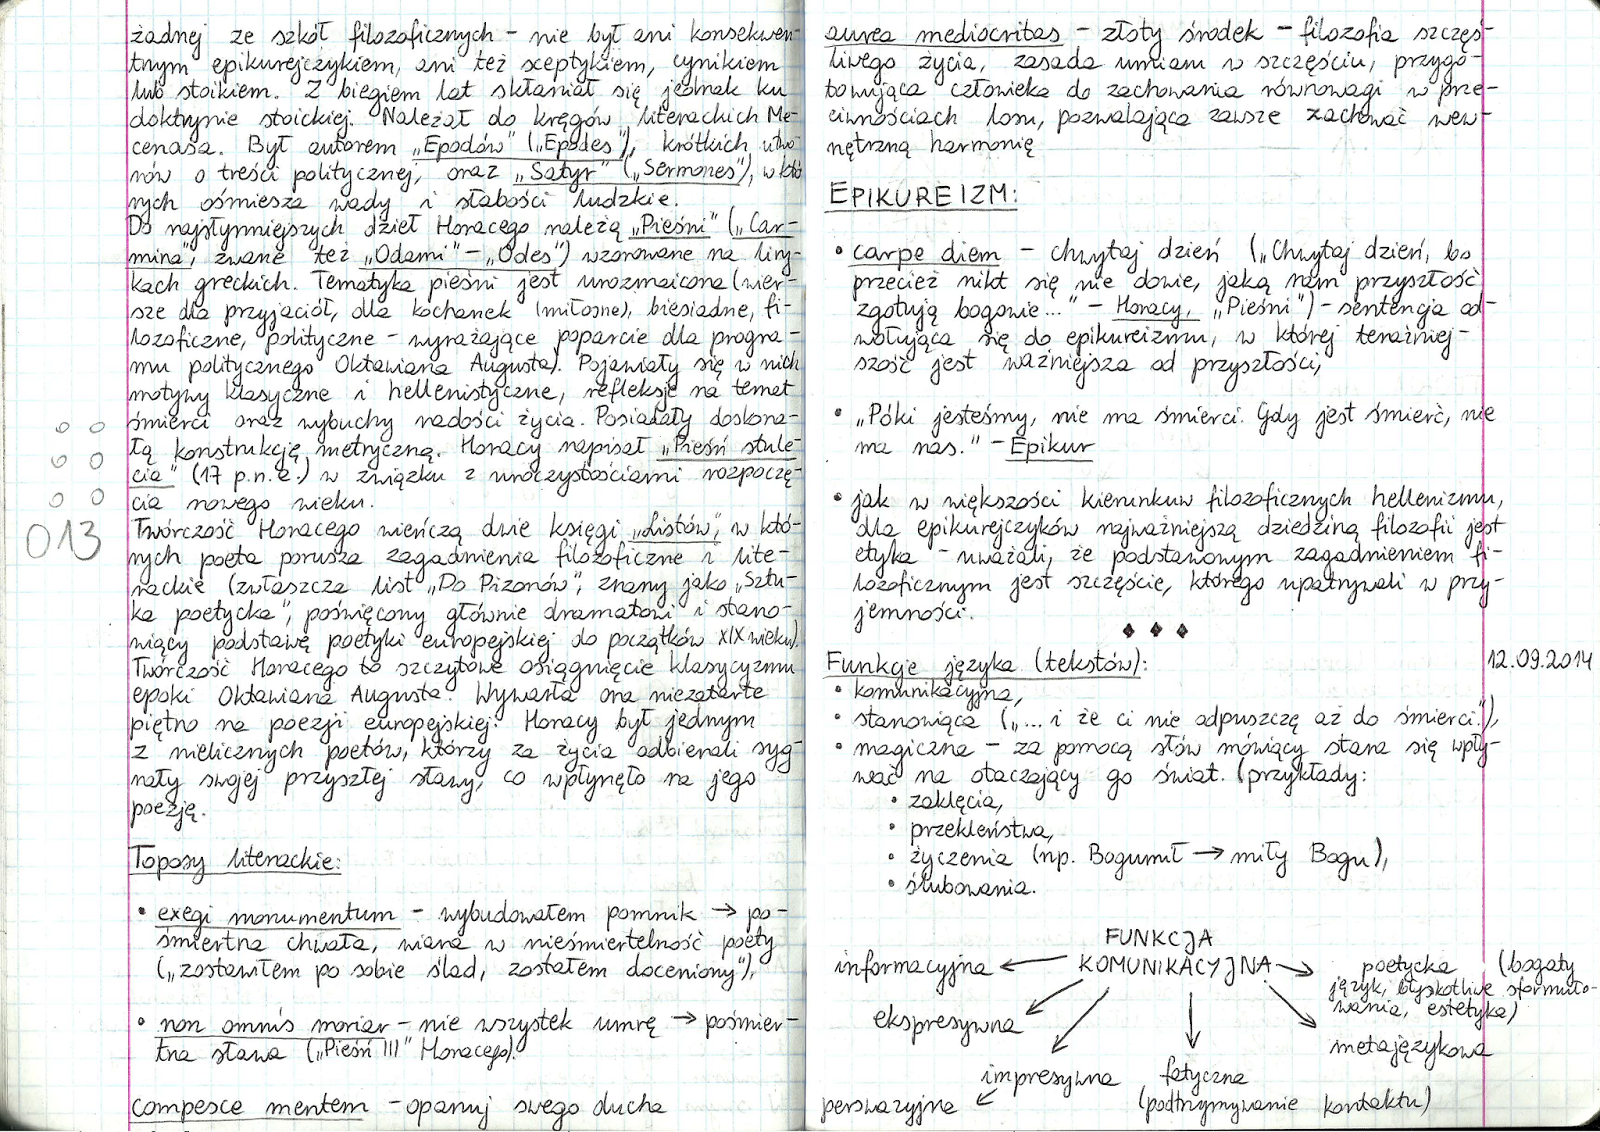 żadnej ze szkół filozoficznych – nie był ani konsekwen-
tnym epikurejczykiem, ani też sceptykiem, cynikiem
lub stoikiem. Z biegiem lat skłaniał się jednak ku
doktrynie stoickiej. Należał do kręgów literackich Me-
cenasa. Był autorem „Epodów" („Epodes"), krótkich utwo-
rów o treści politycznej, oraz „Satyr" („Sermones"), w któ-
rych ośmiesza wady i słabości ludzkie.
Do najsłynniejszych dzieł Horacego należą „Pieśni" („Car-
mina", zwane też „Odami" – „Odes") wzorowane na liry-
kach greckich. Tematyka pieśni jest urozmaicona (wier-
sze dla przyjaciół, dla kochanek (miłosne), biesiadne, fi-
lozoficzne, polityczne – wyrażające poparcie dla progra-
mu politycznego Oktawiana Augusta). Pojawiały się w nich
motywy klasyczne i hellenistyczne, refleksje na temat
śmierci oraz wybuchy radości życia. Posiadały doskona-
łą konstrukcję metryczną. Horacy napisał „Pieśń stule-
cia" (17 p.n.e.) w związku z uroczystościami rozpoczę-
cia nowego wieku.
013
Twórczość Horacego wieńczą dwie księgi „Listów", w któ-
rych poeta porusza zagadnienia filozoficzne i lite-
rackie (zwłaszcza list „Do Pizonów", znany jako „Sztu-
ka poetycka", poświęcony głównie dramatowi i stano-
wiący podstawę poetyki europejskiej do początków XIX wieku).
Twórczość Horacego to szczytowe osiągnięcie klasycyzmu
epoki Oktawiana Augusta. Wywarła ona niezatarte
piętno na poezji europejskiej. Horacy był jednym
z nielicznych poetów, którzy za życia odbierali syg-
nały swojej przyszłej sławy, co wpłynęło na jego
poezję.
Toposy literackie:
• exegi monumentum – wybudowałem pomnik → po-
śmiertna chwała, wiara w nieśmiertelność poety
(„zostawiłem po sobie ślad, zostałem doceniony"),
• non omnis moriar – nie wszystek umrę → pośmier-
tna sława („Pieśń III" Horacego).
compesce mentem – opanuj swego ducha
aurea mediocritas – złoty środek – filozofia szczęś-
liwego życia, zasada umiaru w szczęściu, przygo-
towująca człowieka do zachowania równowagi w prze-
ciwnościach losu, pozwalająca zawsze zachować wew-
nętrzną harmonię
EPIKUREIZM:
• carpe diem – chwytaj dzień („Chwytaj dzień, bo
przecież nikt się nie dowie, jaką nam przyszłość
zgotują bogowie..." – Horacy, „Pieśni") – sentencja od-
wołująca się do epikureizmu, w której teraźniej-
szość jest ważniejsza od przyszłości,
• „Póki jesteśmy, nie ma śmierci. Gdy jest śmierć, nie
ma nas." – Epikur
• jak w większości kierunkuw filozoficznych hellenizmu,
dla epikurejczyków najważniejszą dziedziną filozofii jest
etyka – uważali, że podstawowym zagadnieniem fi-
lozoficznym jest szczęście, którego upatrywali w przy-
jemności.
Funkcje języka (tekstów): 12.09.2014
• komunikacyjna,
• stanowiąca („... i że ci nie odpuszczę aż do śmierci."),
• magiczna – za pomocą słów mówiący stara się wpły-
wać na otaczający go świat. (przykłady:
• zaklęcia,
• przekleństwa,
• życzenia (np. Bogumił → miły Bogu),
• ślubowania.
FUNKCJA
informacyjna ← KOMUNIKACYJNA → poetycka (bogaty
język, błyskotliwe sformuło-
wania, estetyka)
ekspresywna
metajęzykowa
impresywna fatyczna
perswazyjna ↙ (podtrzymywanie kontaktu)